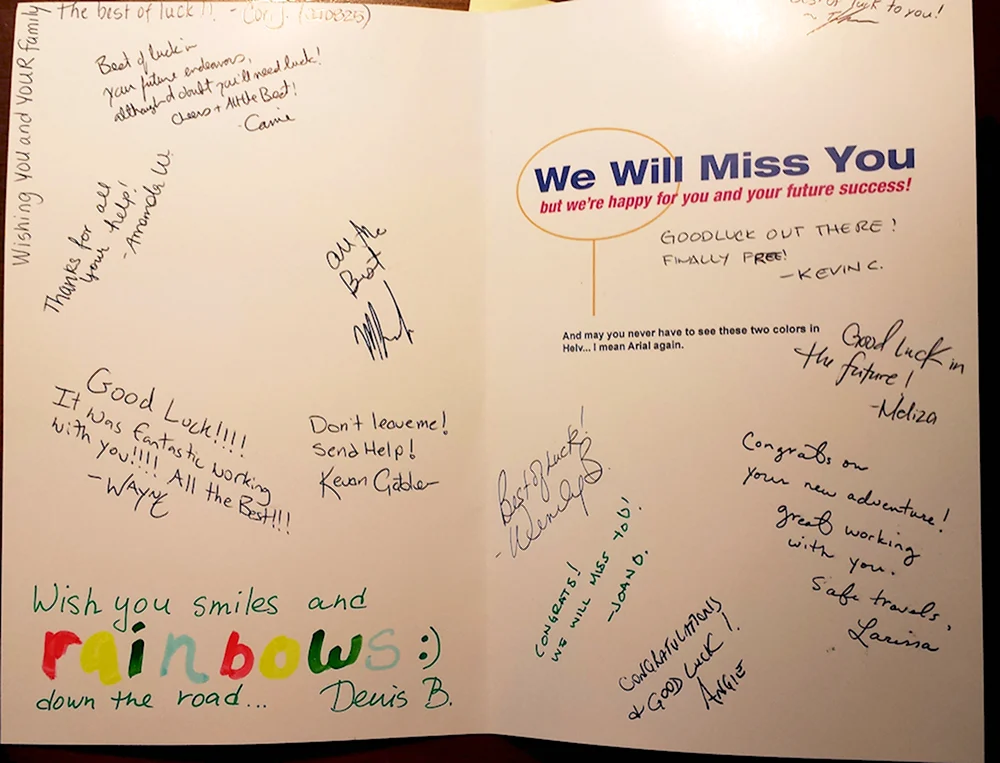 Wishing you and YOUR family
The best of luck!! - Cori J.
Best of luck in
your future endeavors,
although I doubt you'll need luck!
Cheers + All the Best!
- Carrie
Thanks for all
your help!
- Amanda W.
All the
Best
Good Luck!!!!
It was fantastic working
with you!!!! All the Best!!!
- WAYNE
Don't leave me!
Send Help!
Kevan
Wish you smiles and
rainbows :)
down the road... Denis B.
Best of luck to you!
We Will Miss You
but we're happy for you and your future success!
GOODLUCK OUT THERE!
FINALLY FREE!
- KEVIN C.
And may you never have to see these two colors in
Helv... I mean Arial again.
Good Luck in
the future!
- Meliza
Best of Luck!
- Wendy B.
Congrats on
your new adventure!
great working
with you.
Safe travels,
Larissa
CONGRATS!
WE WILL MISS YOU!
- JOAN D.
CONGRATULATIONS
& GOOD LUCK!
ANGIE